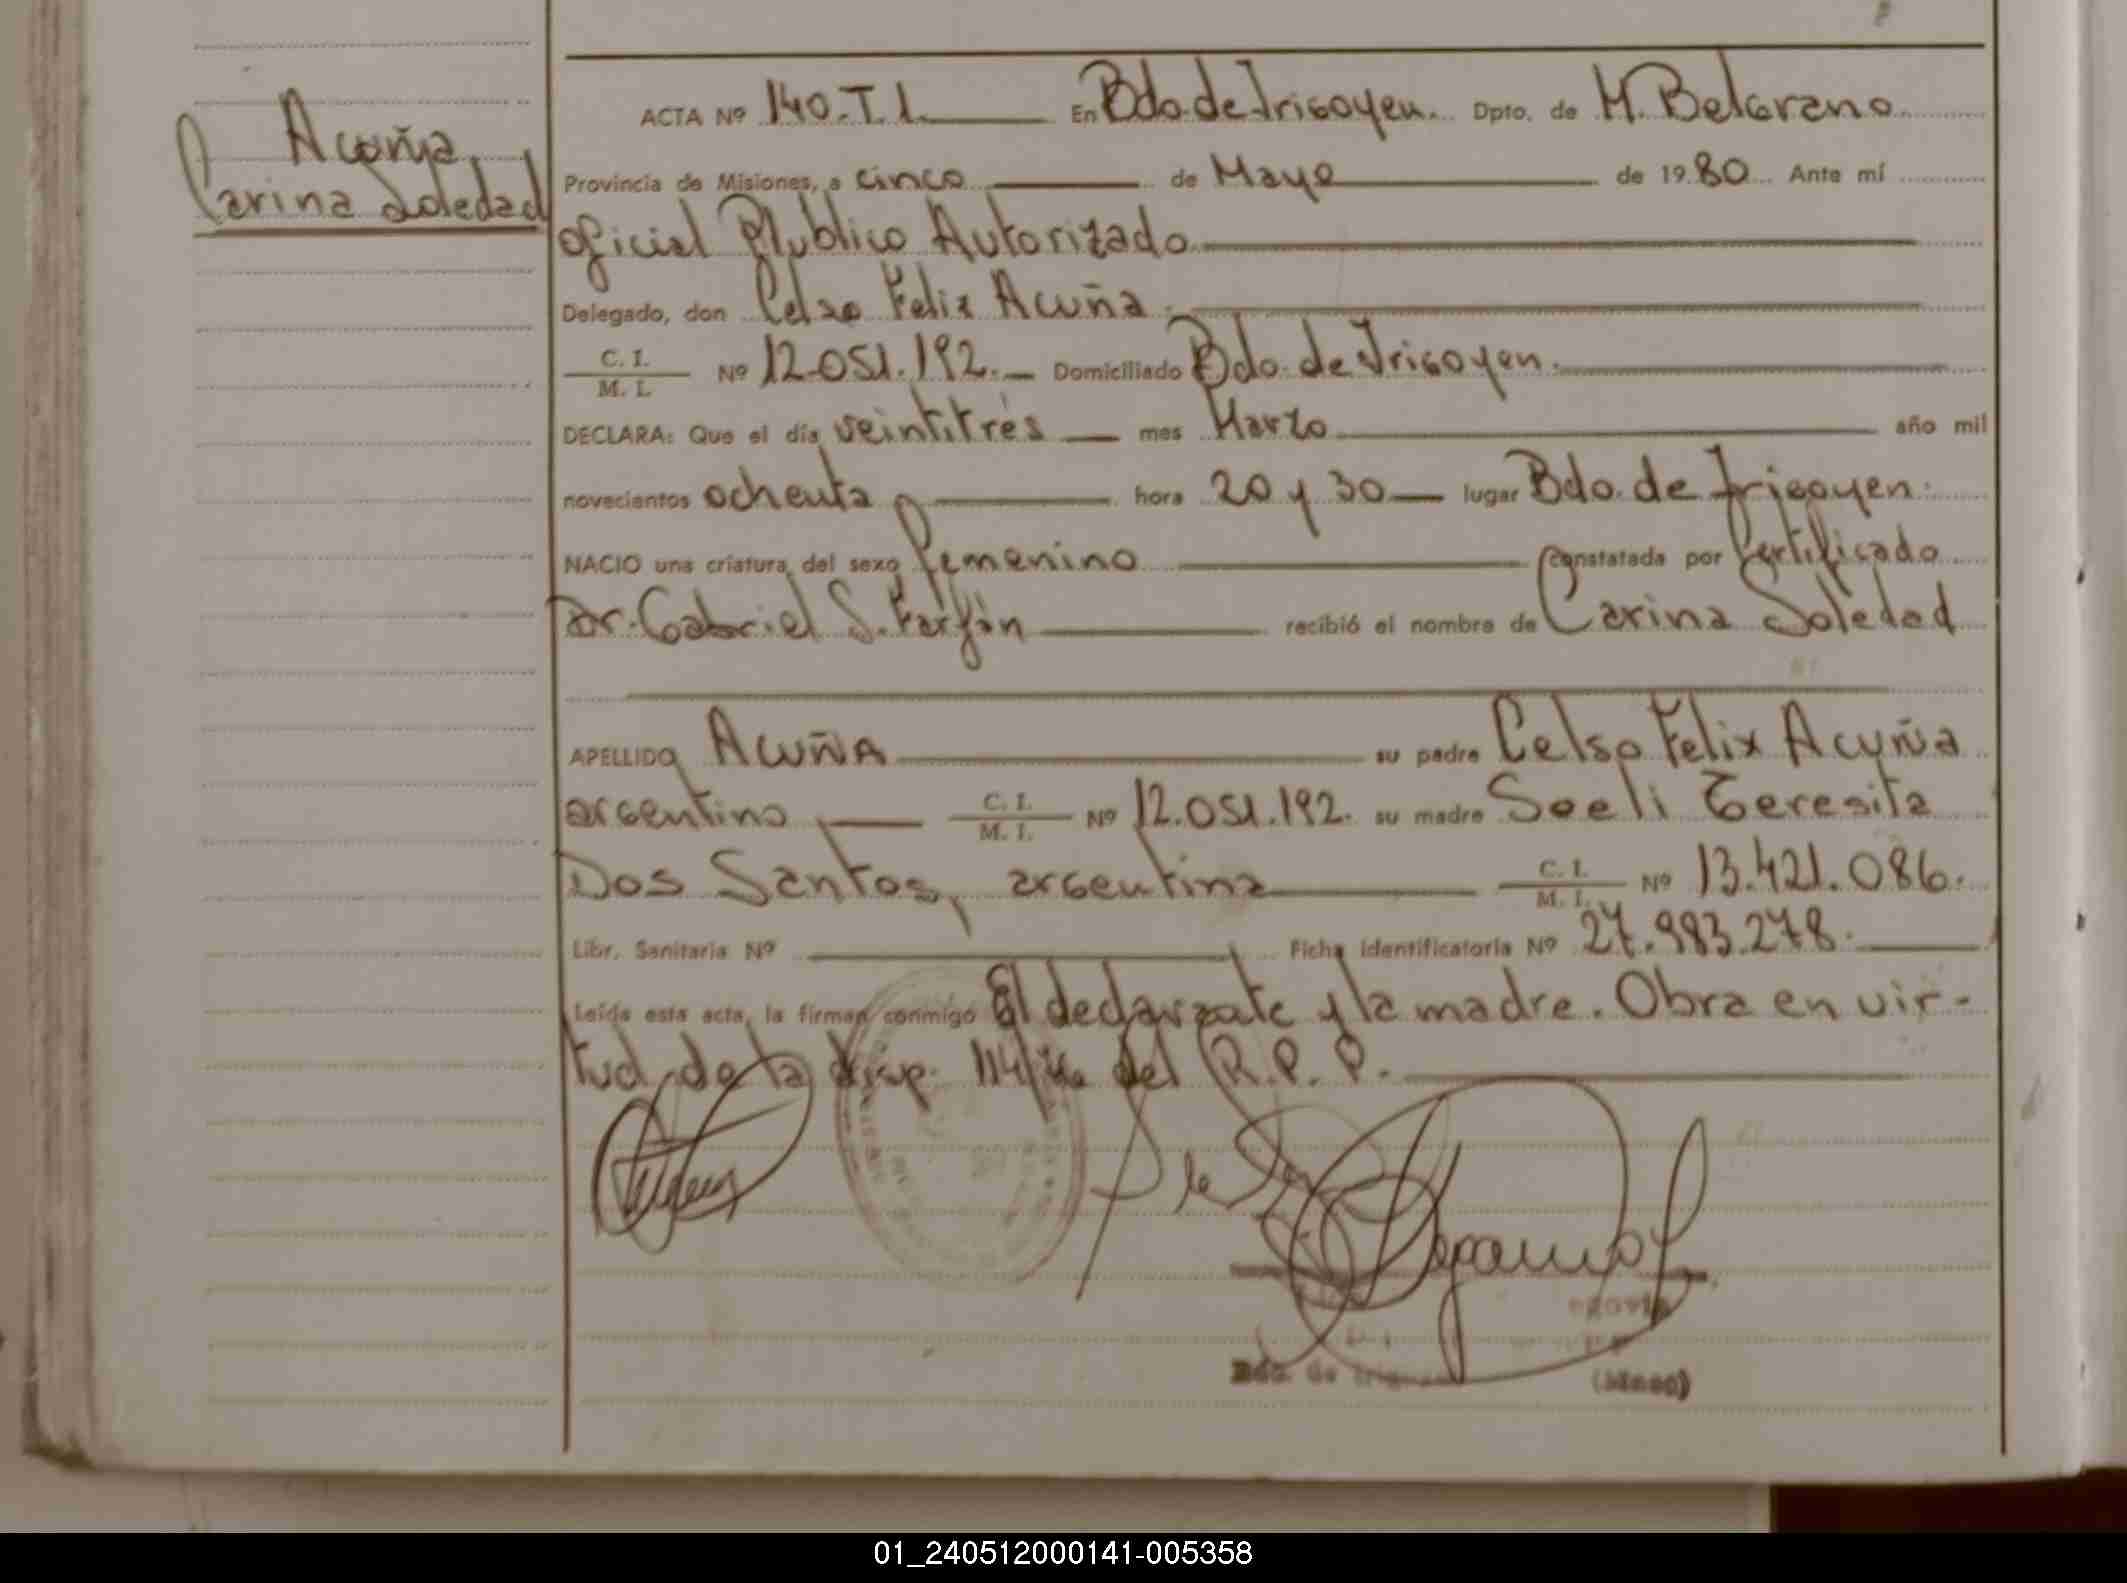 Acuña,
Carina Soledad
ACTA Nº 140. T. I. En Bdo. de Irigoyen. Dpto. de M. Belgrano
Provincia de Misiones, a cinco de Mayo de 1980 Ante mí
oficial Público Autorizado
Delegado, don Celso Felix Acuña
C. I. / M. I. Nº 12.051.192. Domiciliado Bdo. de Irigoyen.
DECLARA: Que el día veintitrés mes Marzo año mil
novecientos ochenta, hora 20 y 30 lugar Bdo. de Irigoyen.
NACIO una criatura del sexo femenino Constatada por Certificado
Dr. Gabriel S. Farfán recibió el nombre de Carina Soledad
APELLIDO ACUÑA su padre Celso Felix Acuña
argentino, C. I. / M. I. Nº 12.051.192. su madre Soeli Teresita
Dos Santos, argentina C. I. / M. I. Nº 13.421.086.
Libr. Sanitaria Nº Ficha Identificatoria Nº 27.983.278.
Leída esta acta, la firman conmigo El declarante y la madre. Obra en vir-
tud de la disp. 114/ del R. P. P.
Bdo. de Irigoyen (Mnes)
01_240512000141-005358